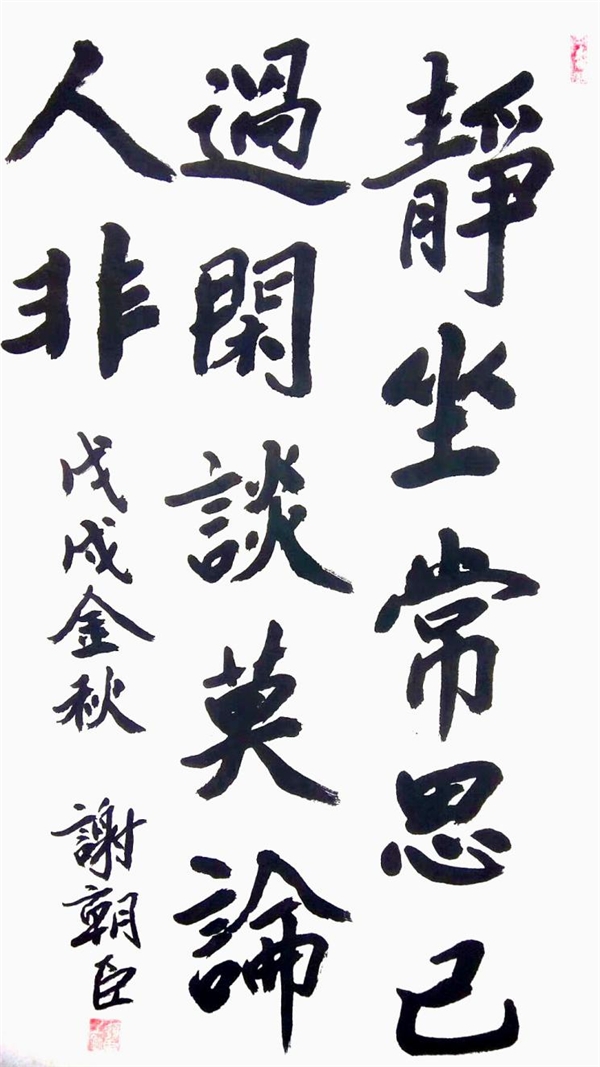 靜坐常思己
過閑談莫論
人非
戊戌金秋
謝朝臣